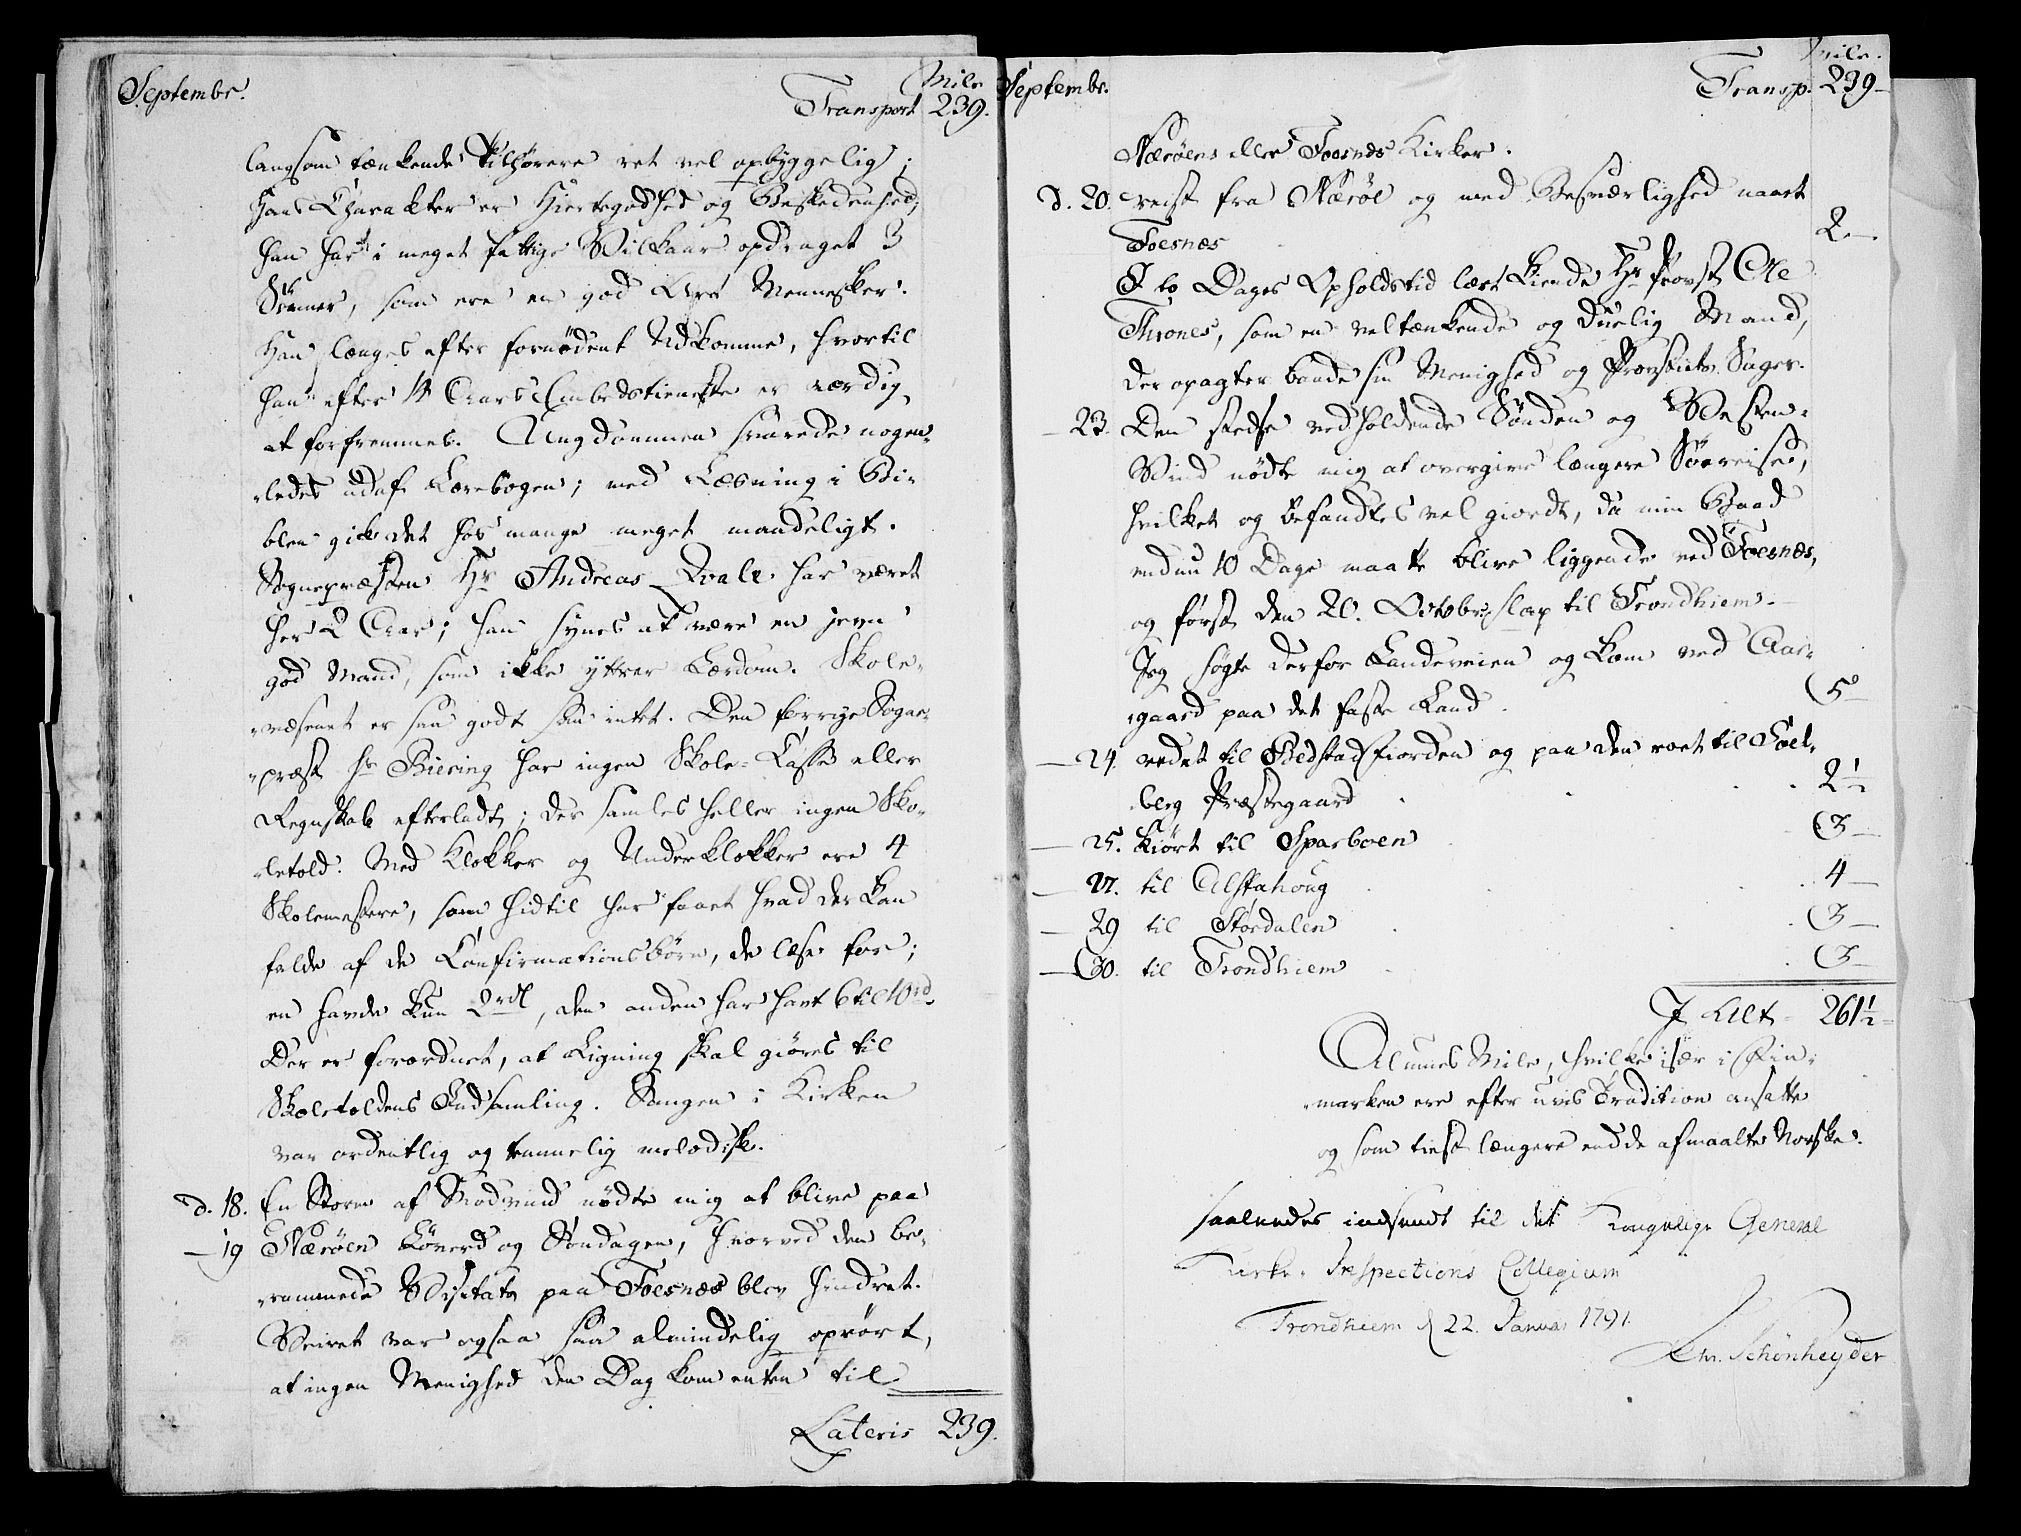 Septembr.
Mile
Transport 239.
langsom tænkende Tilhørere ret vel opbyggelig;
Hans Charakter er Hiertegodhed og Beskedenhed,
han har i meget fattige Vilkaar opdraget 3
Sønner, som ere en god Art Mennesker.
Han længes efter fornødent Udkomme, hvortil
han efter 14 Aars Embedstieneste er værdig
at forfremmes. Ungdommen svarede nogen-
-ledes udaf Lærebogen; med Læsning i Bi-
blen gik det hos mange meget maadeligt.
Sognepræsten Hr Andreas Qvale har været
her 2 Aar; han synes at være en jevn
god Mand, som ikke yttrer Lærdom. Skole-
-væsenet er saa godt som intet. Den forrige Sogne-
-præst Hr Biering har ingen Skole-Casse eller
Regnskab efterladt; der samles heller ingen Sko-
-letold. Med Klokker og Underklokker ere 4
Skolemestere, som hidtil har faaet hvad der kan
falde af de Confirmationsbörn, de læse for;
en havde kun 2 rdl, den anden har havt 6 til 10 rd.
Der er forordnet, at Ligning skal giøres til
Skoletoldens Indsamling. Sangen i Kirken
var ordentlig og temmelig melodisk.
d. 18. En Storm af Modvind nødte mig at blive paa
— 19 Nærøen Löverd og Söndagen, hvorved den be-
-rammede Visitats paa Foesnæs blev hindret.
Veiret var ogsaa saa almindelig oprørt,
at ingen Menighed den Dag kom enten til
Lateris 239.
Septembr.
Mile.
Transp. 239
Nærøens eller Foesnæs Kirker.
d. 20. reist fra Nærøe og med Besværlighed naaet
Foesnæs 2
I to Dages Opholdstid lært kiende Hr Provst Ole
Thrones, som en veltænkende og duelig Mand,
der opagter baade sin Menighed og Provstiets Sager.
— 23. Den stedse vedholdende Sönden og Vesten-
Vind nødte mig at overgive længere Söereise,
hvilket og befandtes vel giordt, da min Baad
endnu 10 Dage maatte blive liggende ved Foesnæs,
og først den 20. Octobr. slap til Trondhiem.
Jeg søgte derfor Landeveien og kom ved Aar-
-gaard paa det faste Land. 5
— 24. redet til Bedstadfiorden og paa den roet til
-berg Præstegaard 2 1/2
— 25. Kiørt til Sparboen 3
— 27. til Alstahoug 4
— 29 til Stördalen 3
— 30. til Trondhiem 3
I Alt 261 1/2
Alunes Mile, hvilke især i Fin-
-marken ere efter uvis Tradition ansatte
og som tiest længere end de afmaalte Norske.
saaledes indsendt til det Kongelige General
Kirke-Inspections Collegium
Trondhiem d 22. Januar 1791.
Chr. Schönheyder